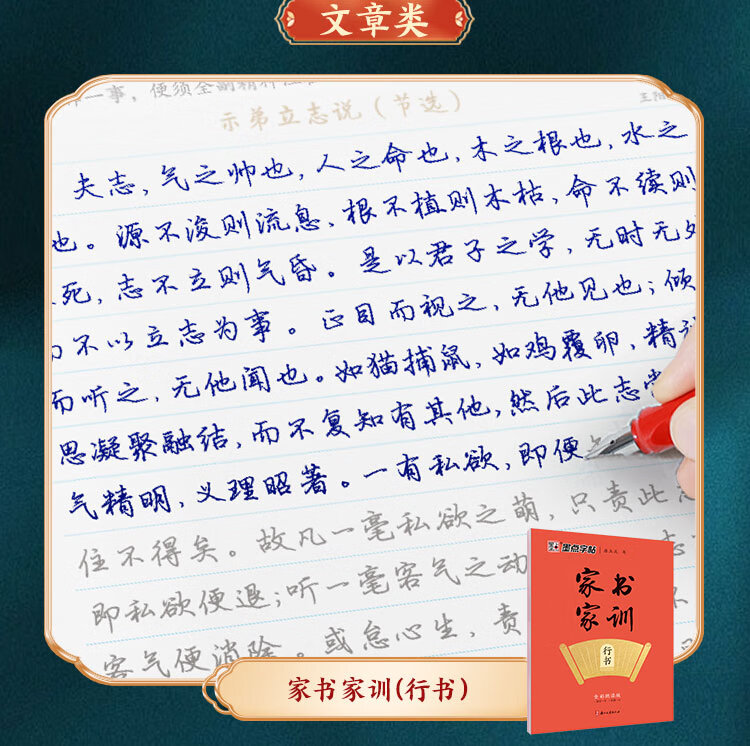 文章类
一事，便须全副精神
示弟立志说（节选）
夫志，气之帅也，人之命也，木之根也，水之
也。源不浚则流息，根不植则木枯，命不续则
死，志不立则气昏。是以君子之学，无时无处
不以立志为事。正目而视之，无他见也；倾
而听之，无他闻也。如猫捕鼠，如鸡覆卵，精
思凝聚融结，而不复知有其他，然后此志常
气精明，义理昭著。一有私欲，即便
住不得矣。故凡一毫私欲之萌，只责此
即私欲便退；听一毫客气之动
客气便消除。或怠心生，责
墨点字帖
家书
家训
行书
家书家训(行书)